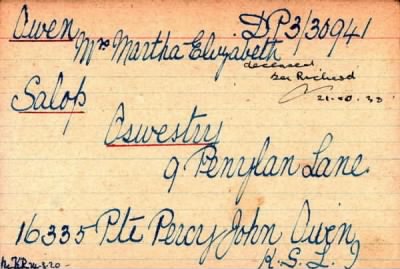 Owen DP3/30941
Mrs Martha Elizabeth
deceased
see Richard
21.10.33
Salop
Oswestry
9 Penylan Lane
16335 Pte Percy John Owen
K.S.L.I